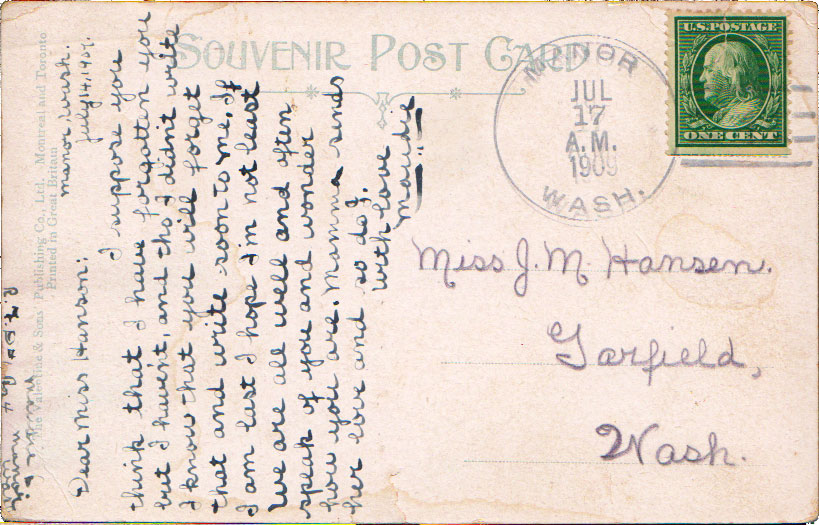 SOUVENIR POST CARD
U.S. POSTAGE
ONE CENT
MANOR
JUL
17
A.M.
1909
WASH.
Miss J. M. Hansen.
Garfield,
Wash.
Manor Wash.
July 14, 1909.
Dear Miss Hanson:
I suppose you
think that I have forgotten you
but I haven't, and tho' I didn't write
I know that you will forget
that and write soon to me. If
I am last I hope I'm not least
We are all well and often
speak of you and wonder
how you are. Mamma sends
her love and so do I.
With love
Maudie
The Valentine & Sons Publishing Co., Ltd., Montreal and Toronto
Printed in Great Britain